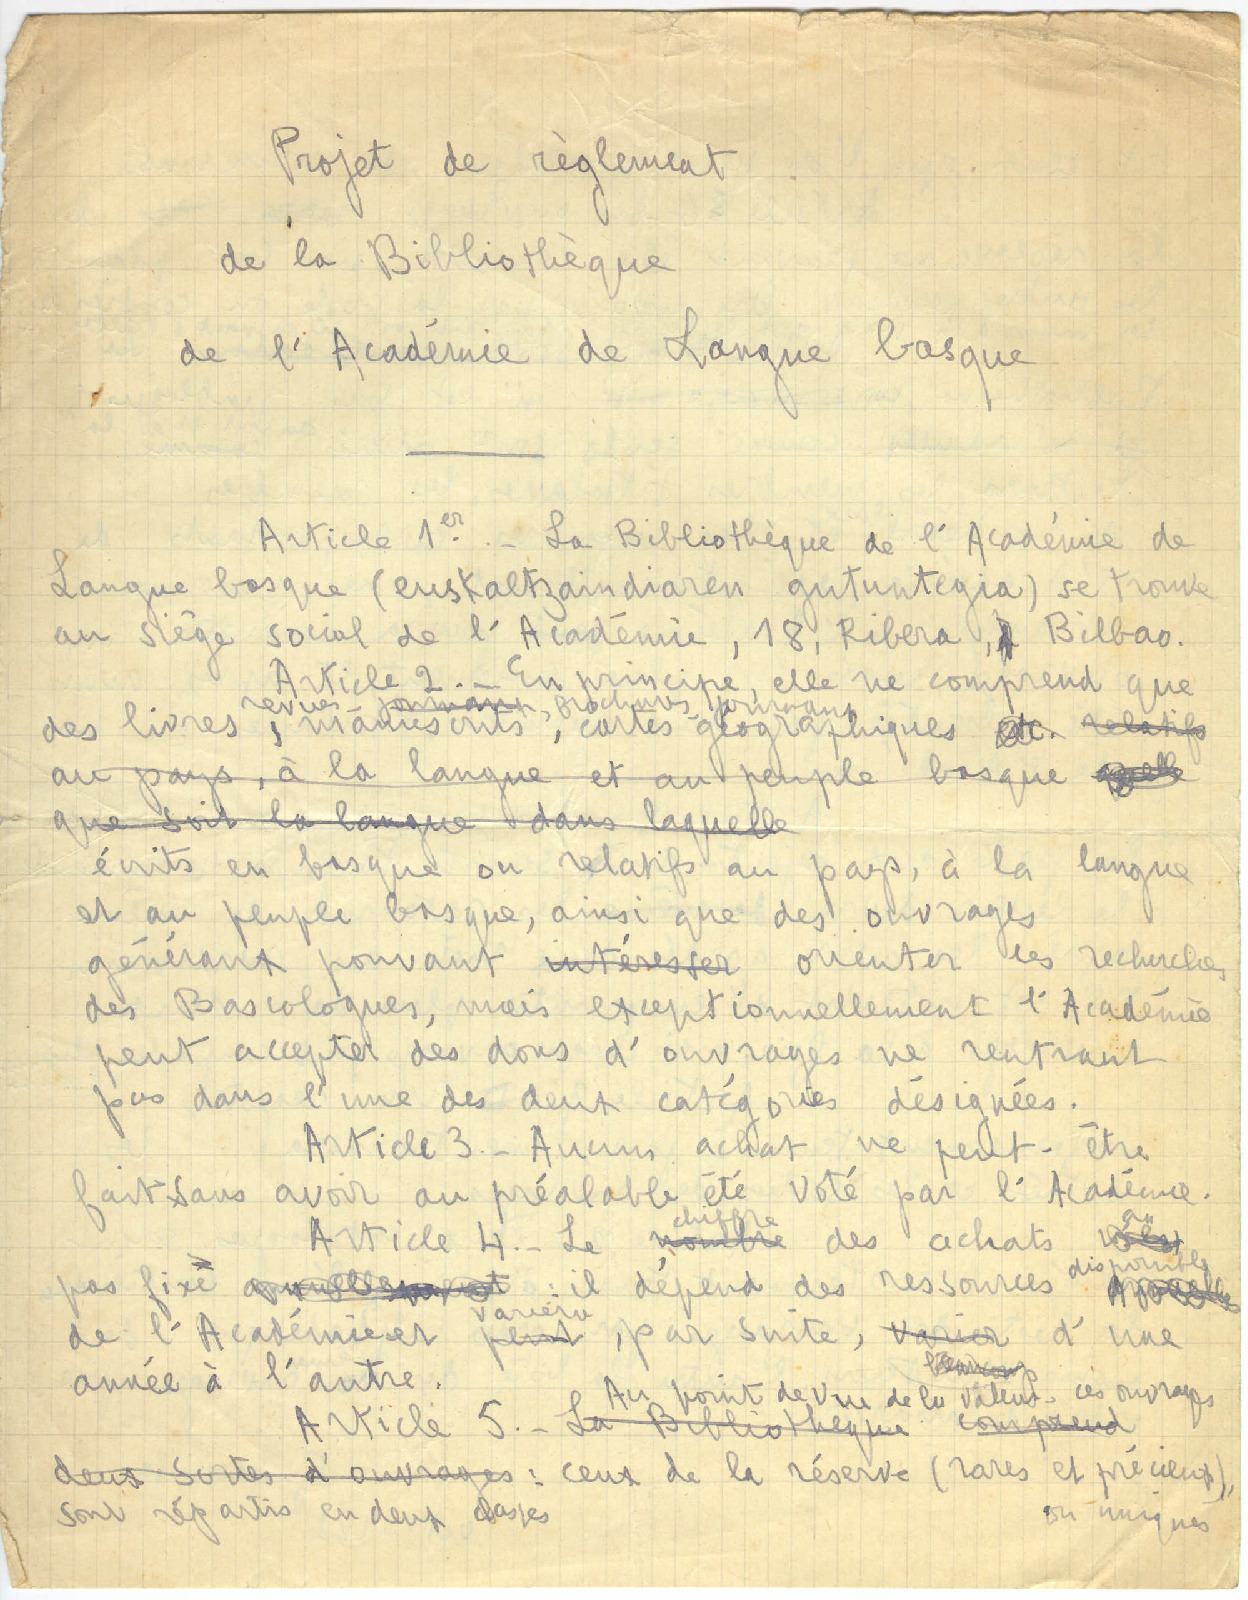 Projet de règlement
de la Bibliothèque
de l'Académie de Langue basque
Article 1er. - La Bibliothèque de l'Académie de
Langue basque (euskaltzaindiaren gutuntegia) se trouve
au siège social de l'Académie, 18, Ribera, Bilbao.
Article 2. - En principe, elle ne comprend que
revues journaux, brochures, journaux
des livres, manuscrits, cartes géographiques etc. relatifs
au pays, à la langue et au peuple basque
que soit la langue dans laquelle
écrits en basque ou relatifs au pays, à la langue
et au peuple basque, ainsi que des ouvrages
généraux pouvant intéresser orienter les recherches
des Bascologues, mais exceptionnellement l'Académie
peut accepter des dons d'ouvrages ne rentrant
pas dans l'une des deux catégories désignées.
Article 3. - Aucun achat ne peut-être
fait sans avoir au préalable été voté par l'Académie.
chiffre
Article 4. - Le nombre des achats n'est
disponibles
pas fixé annuellement : il dépend des ressources
variera
de l'Académie et peut, par suite, varier d'une
année à l'autre.
Au point de vue de la valeur ces ouvrages
Article 5. - La Bibliothèque comprend
deux sortes d'ouvrages : ceux de la réserve (rares et précieux),
sont répartis en deux classes ou uniques